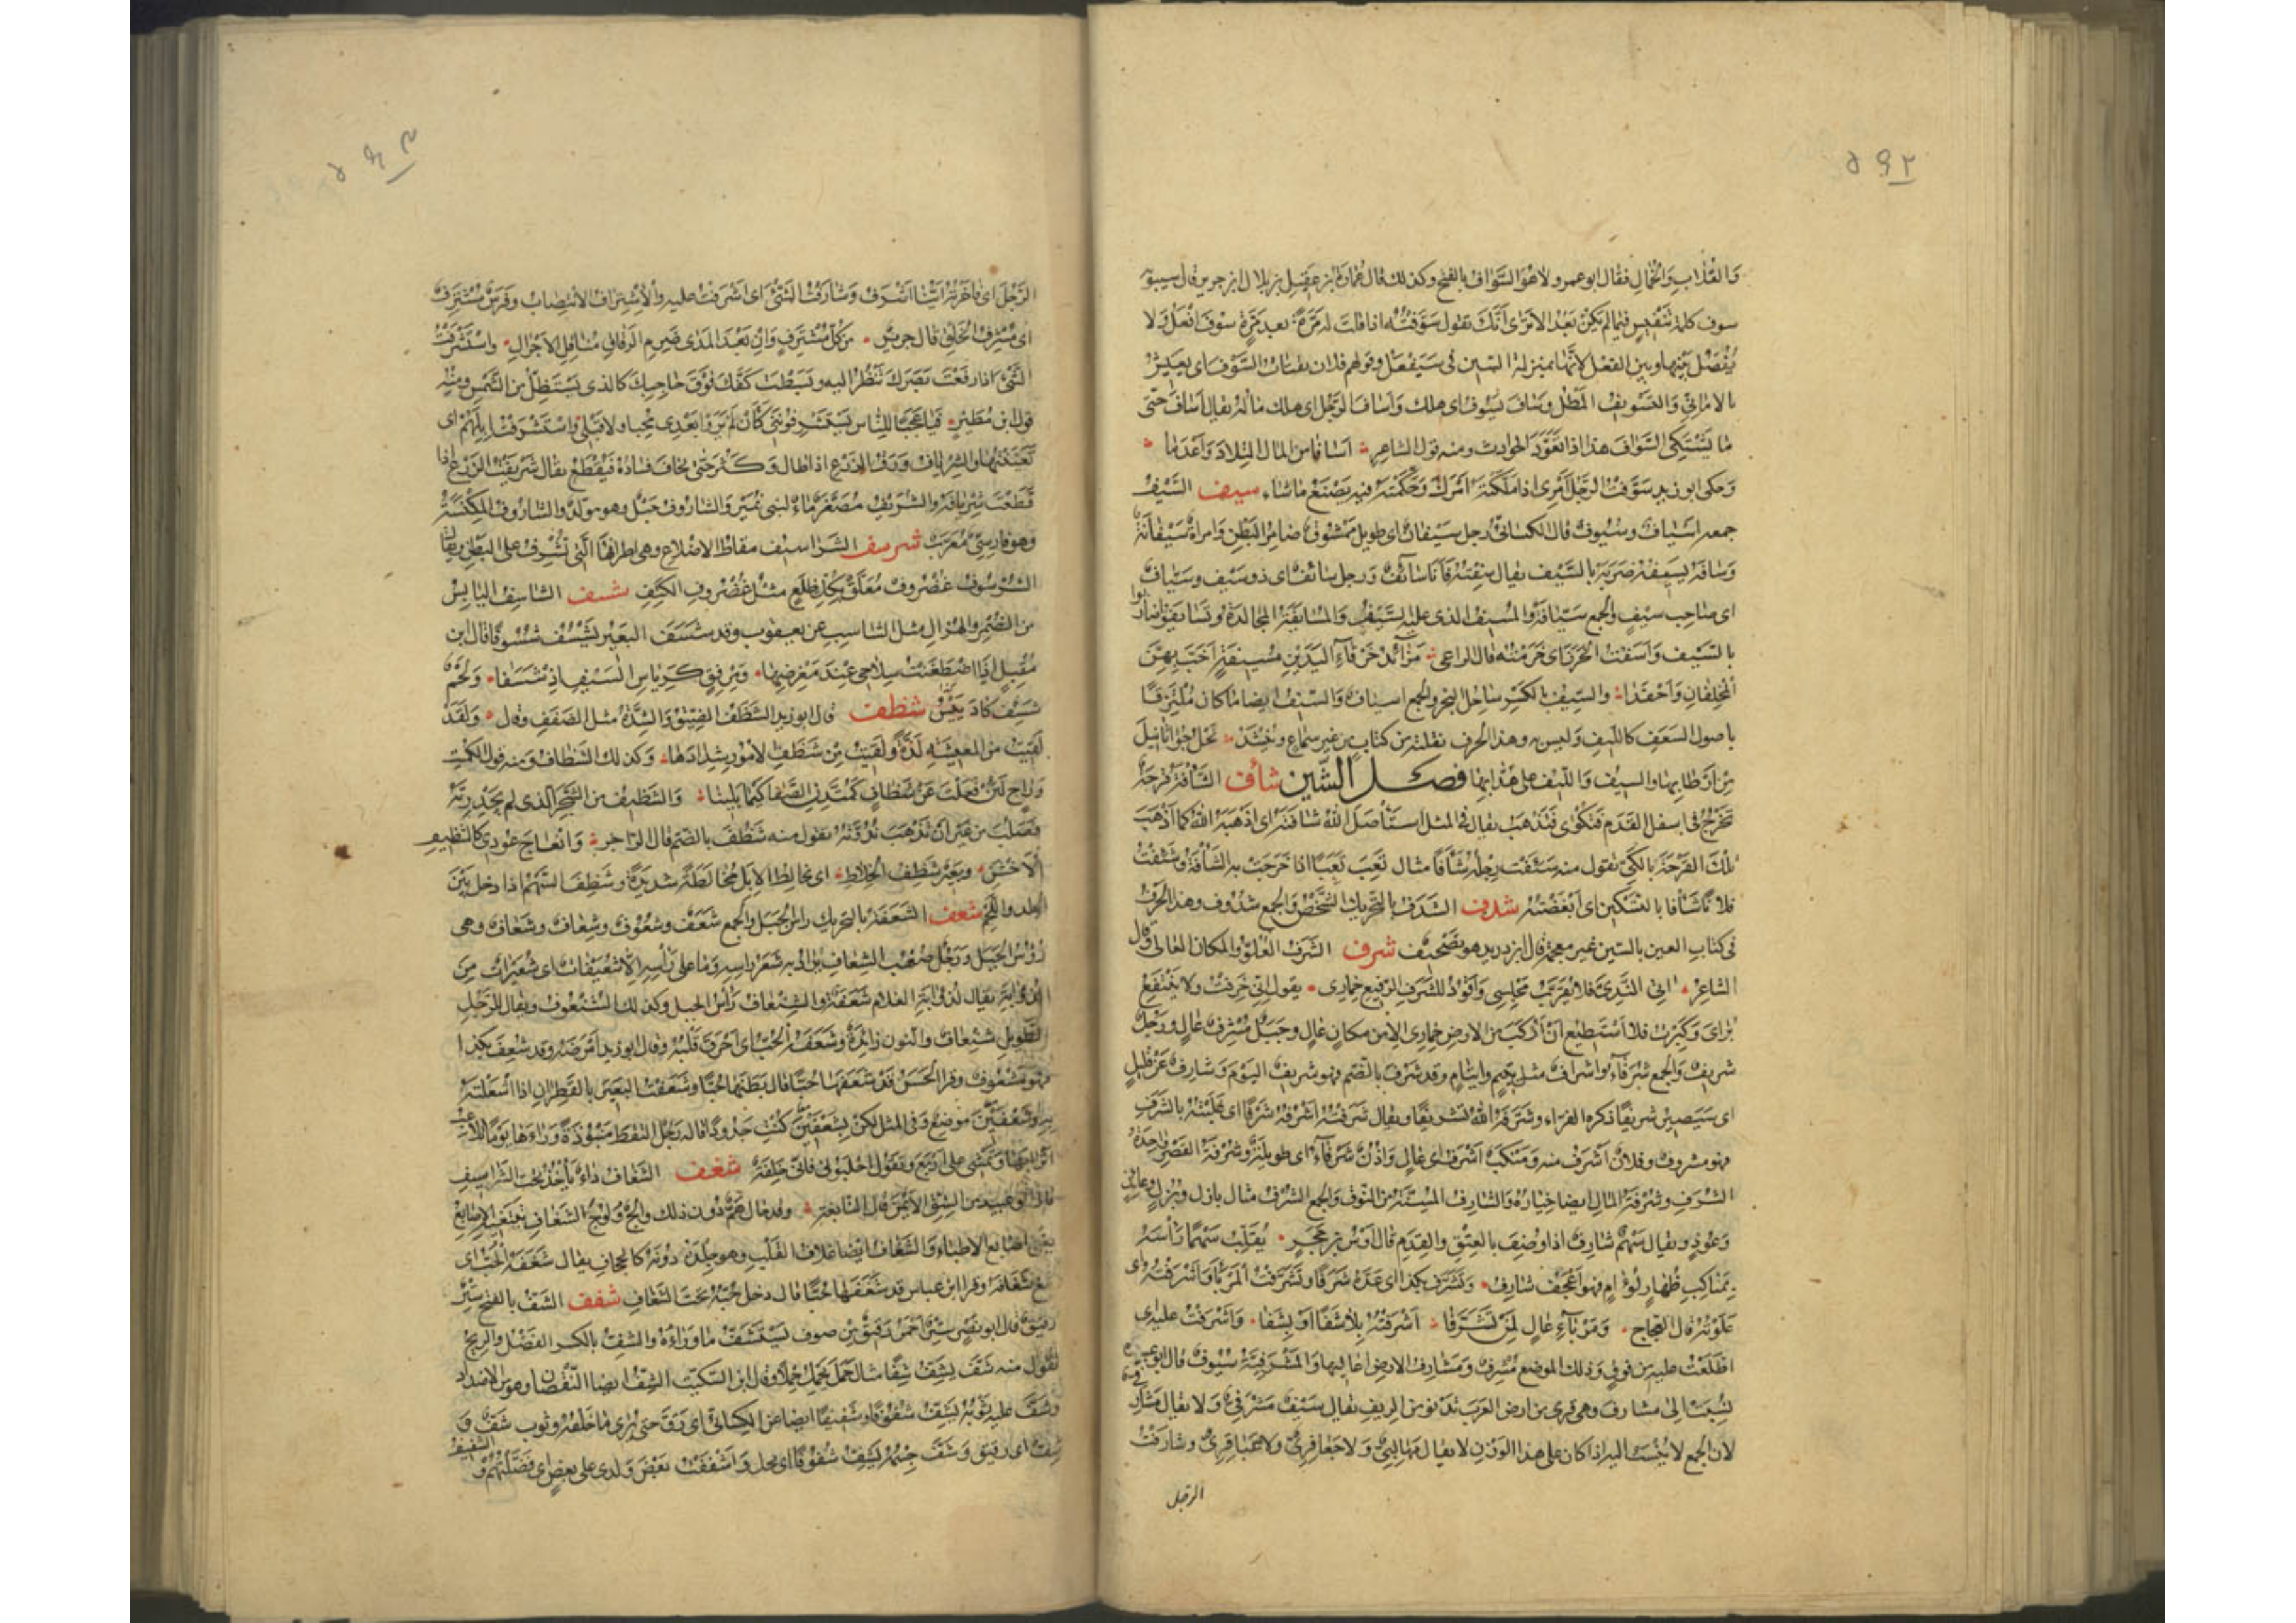 ٥٩٢
والقلاب والخمال فقال ابو عمرو لا هو السَّوَاف بالفتح وكذلك قال عمارة بن عقيل بن بلال ابن جرير قال سيبويه
سوف كلمة تنفيس فيما لم يكن بعد الا ترى أنك تقول سَوَّفْتُهُ اذا قلت له مَرَّة بعد مَرَّة سوف افعل ولا
يُفْصَل بينها وبين الفعل لانها بمنزلة السين فى سيفعل وقولهم فلان يقتات السَّوْف اى يعيش
بالامانى والتسويف المَطْل وساف يسوف اى هلك وأساف الرجل اى هلك ماله يقال أساف حتى
ما يشتكى السَّوَاف هذا اذا تعوَّد الحوادث ومنه قول الشاعر أسافا من المال التلاد وأعدما
وحكى ابو زيد سَوَّفْتُ الرجل أمرى اذا ملَّكته أمرك وحكَّمته فيه يصنع ما شاء سيف السَّيْف
جمعه أسياف وسيوف قال الكسائى رجل سَيْفان اى طويل ممشوق ضامر البطن وامرأة سَيْفانة
وسافه يسيفه ضربه بالسيف يقال سِفْتُهُ فانا سائف ورجل سائف اى ذو سيف وسيّاف
اى صاحب سيف والجمع سيّافة والمُسِيف الذى عليه السيف والمسايفة المجالدة وتسايفوا تضاربوا
بالسيف وأسفت الخرز اى خرمته قال الراعى مزائد خرقاء اليدين مسيفة أخبّ بهنّ
المخلفان وأحفدا والسِّيف بالكسر ساحل البحر والجمع اسياف والسِّيف ايضا ما كان ملتزقا
باصول السعف كالليف وليس به وهذا الحرف نقلته من كتاب من غير سماع وينشد نخل جواثا نيل
من أرطابها والسيف والليف على هدابها فصل الشين شأف الشأفة قرحة
تخرج فى اسفل القدم فتكوى فتذهب يقال فى المثل استأصل الله شأفته اى اذهبه الله كما أذهب
تلك القرحة بالكىّ تقول منه شئفت رجله شأفا مثال تعب تعبا اذا خرجت به الشأفة وشئفت
فلانا شأفا بالتسكين اى أبغضته شدف الشَّدَف بالتحريك الشخص والجمع شدوف وهذا الحرف
فى كتاب العين بالسين غير معجمة قال ابن دريد هو تصحيف شرف الشرف العلوّ والمكان العالى وقال
الشاعر اتى الندىّ فلا يقرّب مجلسى وأقود للشرف الرفيع حمارى يقول انّى خرفت ولا ينتفع
برأى وكبرت فلا أستطيع أن أركب من الارض حمارى الا من مكان عال وجبل مُشْرِف عال ورجل
شريف والجمع شرفاء واشراف مثل يتيم وايتام وقد شَرُف بالضم فهو شريف اليوم وشارف عن قليل
اى سيصير شريفا ذكره الفراء وشرّفه الله تشريفا ويقال شرفته أشرفه شرفا اى غلبته بالشرف
فهو مشروف وفلان أشرف منه ومنكب أشرف اى عال وأذن شرفاء اى طويلة وشرفة القصر واحدة
الشرف وشرفة المال ايضا خياره والشارف المسنّة من النوق والجمع الشرف مثال بازل وبزل وعائذ
وعوذ ويقال سهم شارف اذا وصف بالعتق والقدم قال أوس بن حجر يقلّب سهما راشه
بمناكب ظهار لؤام فهو أعجف شارف وتشرّف بكذا اى عدّه شرفا وتشرّفت المربأ وأشرفته اى
علوته قال العجاج ومربأ عال لمن تشرّفا أشرفته بلا شفا أو بشفا وأشرفت عليه اى
اطّلعت عليه من فوق وذلك الموضع مُشْرَف ومشارف الارض أعاليها والمشرفيّة سيوف قال ابو عبيدة
نُسِبَت الى مشارف وهى قرى من ارض العرب تدنو من الريف يقال سيف مشرفىّ ولا يقال مشارفىّ
لان الجمع لا ينسب اليه اذا كان على هذا الوزن لا يقال مهالبىّ ولا جعافرىّ ولا عباقرىّ وشارفت
الرجل
٥٩٣
الرجل اى فاخرته أيّنا أشرف وشارفت الشئ اى اشرفت عليه والاشتراف الانتصاب وفرس مشترف
اى مشرف الخلق قال جرير من كل مشترف وان بعد المدى ضرم الرقاق مناقل الأجرال واستشرفت
الشئ اذا رفعت بصرك تنظر اليه وبسطت كفّك فوق حاجبك كالذى يستظلّ من الشمس ومنه
قول ابن مطير فيا عجبا للناس يستشرفوننى كأن لم يروا بعدى محبا ولا قبلى واستشرفت ابلهم اى
تعيّنتها والشرياف ورق الزرع اذا طال وكثر حتى يخاف فساده فيقطع يقال شريفت الزرع اذا
قطعت شريافه والشُّرَيف مصغّر ماء لبنى نمير والشاروف حبل وهو مولّد والشاروف المكنسة
وهو فارسىّ معرّب شرسف الشراسيف مقاطّ الاضلاع وهى اطرافها التى تشرف على البطن ويقال
الشرسوف غضروف معلّق بكل ضلع مثل غضروف الكتف شسف الشاسف اليابس
من الضمر والهزال مثل الشاسب عن يعقوب وقد شسف البعير يشسف شسوفا قال ابن
مقبل اذا اضطغنت سلاحى عند مغرضها ومرفق كرئاس السيف اذ شسفا ولحم
شسيف كاد ييبس شظف قال ابو زيد الشظف الضيق والشدّة مثل الضفف وقال ولقد
لقيت من المعيشة لذّة ولقيت من شظف الامور شدادها وكذلك الشظاف ومنه قول الكميت
وراج لين تغلب عن شظاف كمتّدن الصفا كيما يلينا والشظيف من الشجر الذى لم يجد ريّه
فصلب من غير أن تذهب ندوّته تقول منه شظف بالضم قال الراجز وانعاج عودى كالشظيف
الأخشن وبعير شظف الخلاط اى يخالط الابل مخالطة شديدة وشظف السهم اذا دخل بين
الجلد واللحم شعف الشعفة بالتحريك رأس الجبل والجمع شعف وشعوف وشعاف وشعفات وهى
رؤس الجبل ورجل صهب الشعاف يراد به شعر راسه وما على رأسه الا شعيفات اى شعيرات من
الذؤابة يقال لذؤابة الغلام شعفة والشنعاف رأس الجبل وكذلك الشنعوف ويقال للرجل
الطويل شنعاف والنون زائدة وشعفه الحبّ اى أحرق قلبه وقال ابو زيد أمرضه وقد شعف بكذا
فهو مشعوف وقرأ الحسن قد شعفها حبّا قال بطنها حبّا وشعفت البعير بالقطران اذا اشعلته
به وشعفين موضع وفى المثل لكن بشعفين كنت جدودا قاله رجل التقط منبوذة ورآها يوما تلاعب
اترابها وتمشى على اربع وتقول احلبونى فانّى خلفة شغف الشغاف داء يأخذ تحت الشراسيف
قال ابو عبيد من الشقّ الايمن قال النابغة وقد حال همّ دون ذلك والج ولوج الشغاف تبتغيه الاصابع
يعنى اصابع الاطباء والشغاف ايضا غلاف القلب وهو جلدة دونه كالحجاب يقال شغفه الحبّ اى
بلغ شغافه وقرأ ابن عباس قد شغفها حبّا قال دخل حبّه تحت الشغاف شفف الشفّ بالفتح ستر
رقيق قال ابو نصر ستر أحمر رقيق من صوف يستشفّ ما وراءه والشفّ بالكسر الفضل والربح
تقول منه شفّ يشفّ شفّا مثال حمل يحمل حملا وقال ابن السكيت الشفّ ايضا النقصان وهو من الاضداد
وشفّ عليه ثوبه يشفّ شفوفا وشفيفا ايضا عن الكسائى اى رقّ حتى يرى ما خلفه وثوب شفّ و
شفّ اى رقيق وشفّ جسمه يشفّ شفوفا اى نحل وأشففت بعض ولدى على بعض اى فضّلتهم و
الشفيف